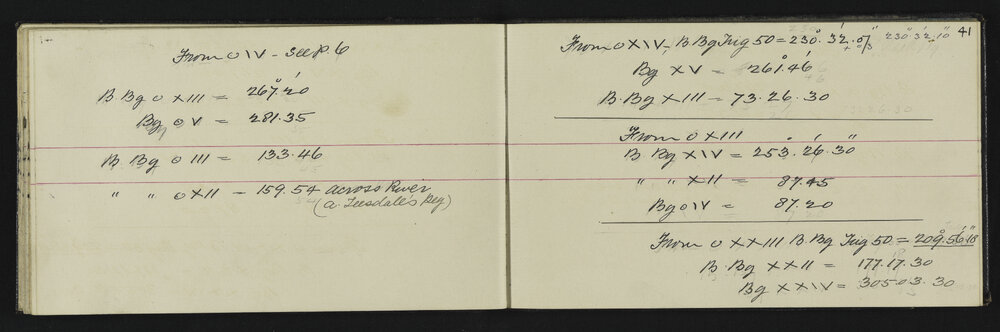 From o IV - See P. 6
B. Bg o XIII = 267°.20'
Bg o V = 281.35
B. Bg o III = 133.46
" " o XII = 159.54 across River
(a. Teesdale's Peg)
41
From o XIV - B Bg Trig 50 = 230°. 32'. 07" 230° 32'. 10"
+ 03
Bg XV = 261°.46'
B. Bg XIII - 73.26.30
From o XIII
B. Bg XIV = 253°. 26'. 30"
" " XII = 87.45
Bg o IV = 87.20
From o XXIII B. Bg Trig 50. = 209°.56'.18"
B. Bg XXII = 177.17.30
Bg XXIV = 305.03.30